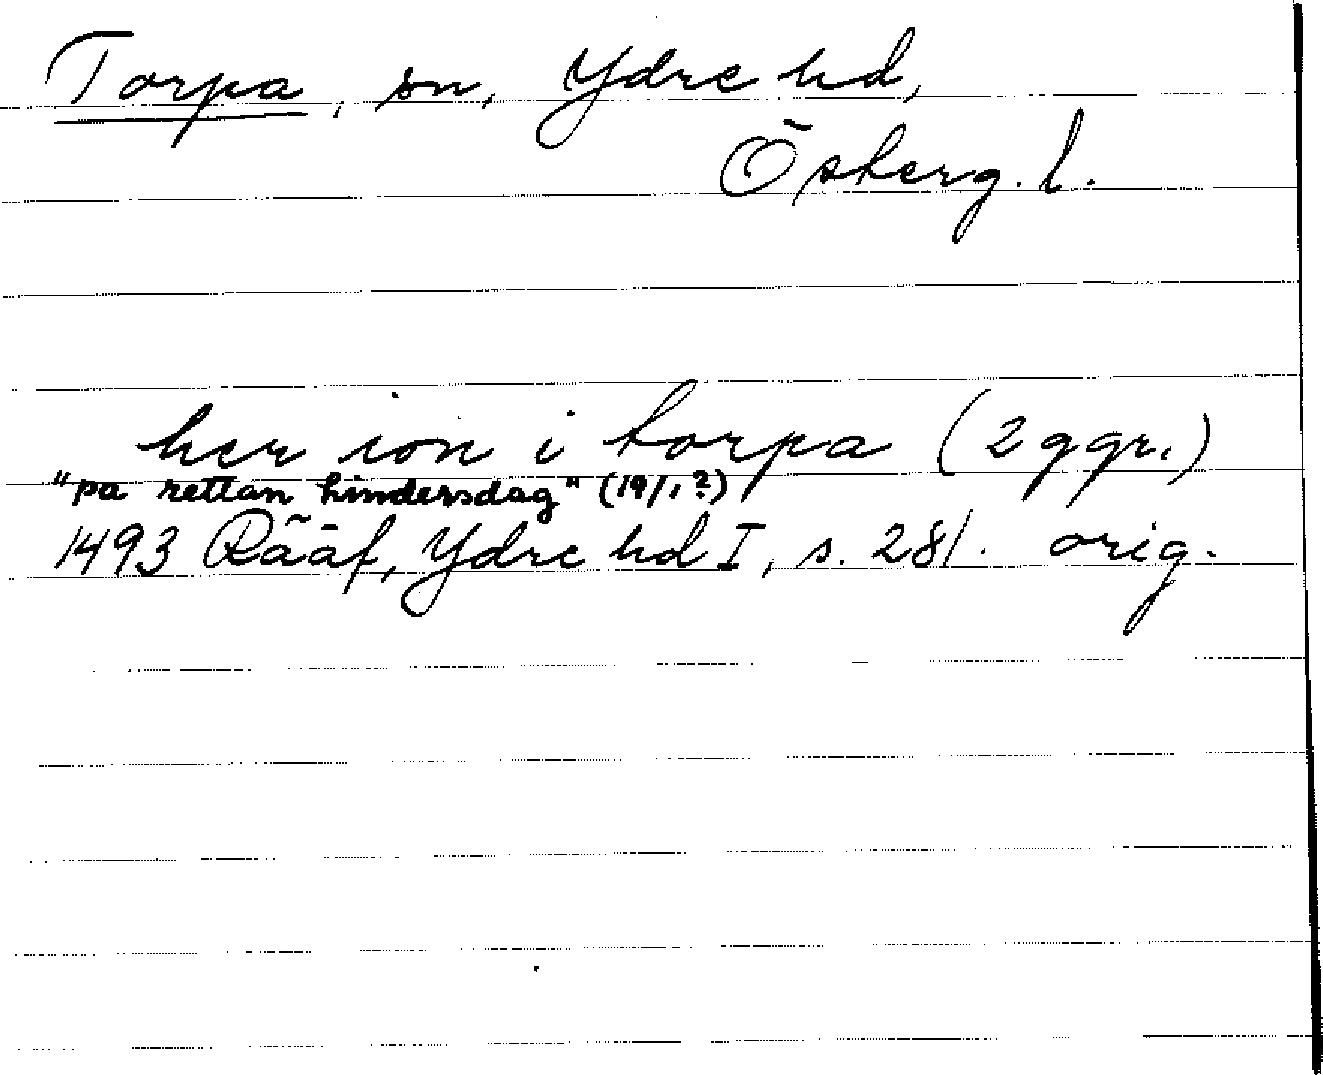 Torpa, sn, Ydre hd,
Österg. l.
her ion i torpa (2 ggr.)
"pa rettan hindersdag" (19/1?)
1493 Rääf, Ydre hd I, s. 281. orig.